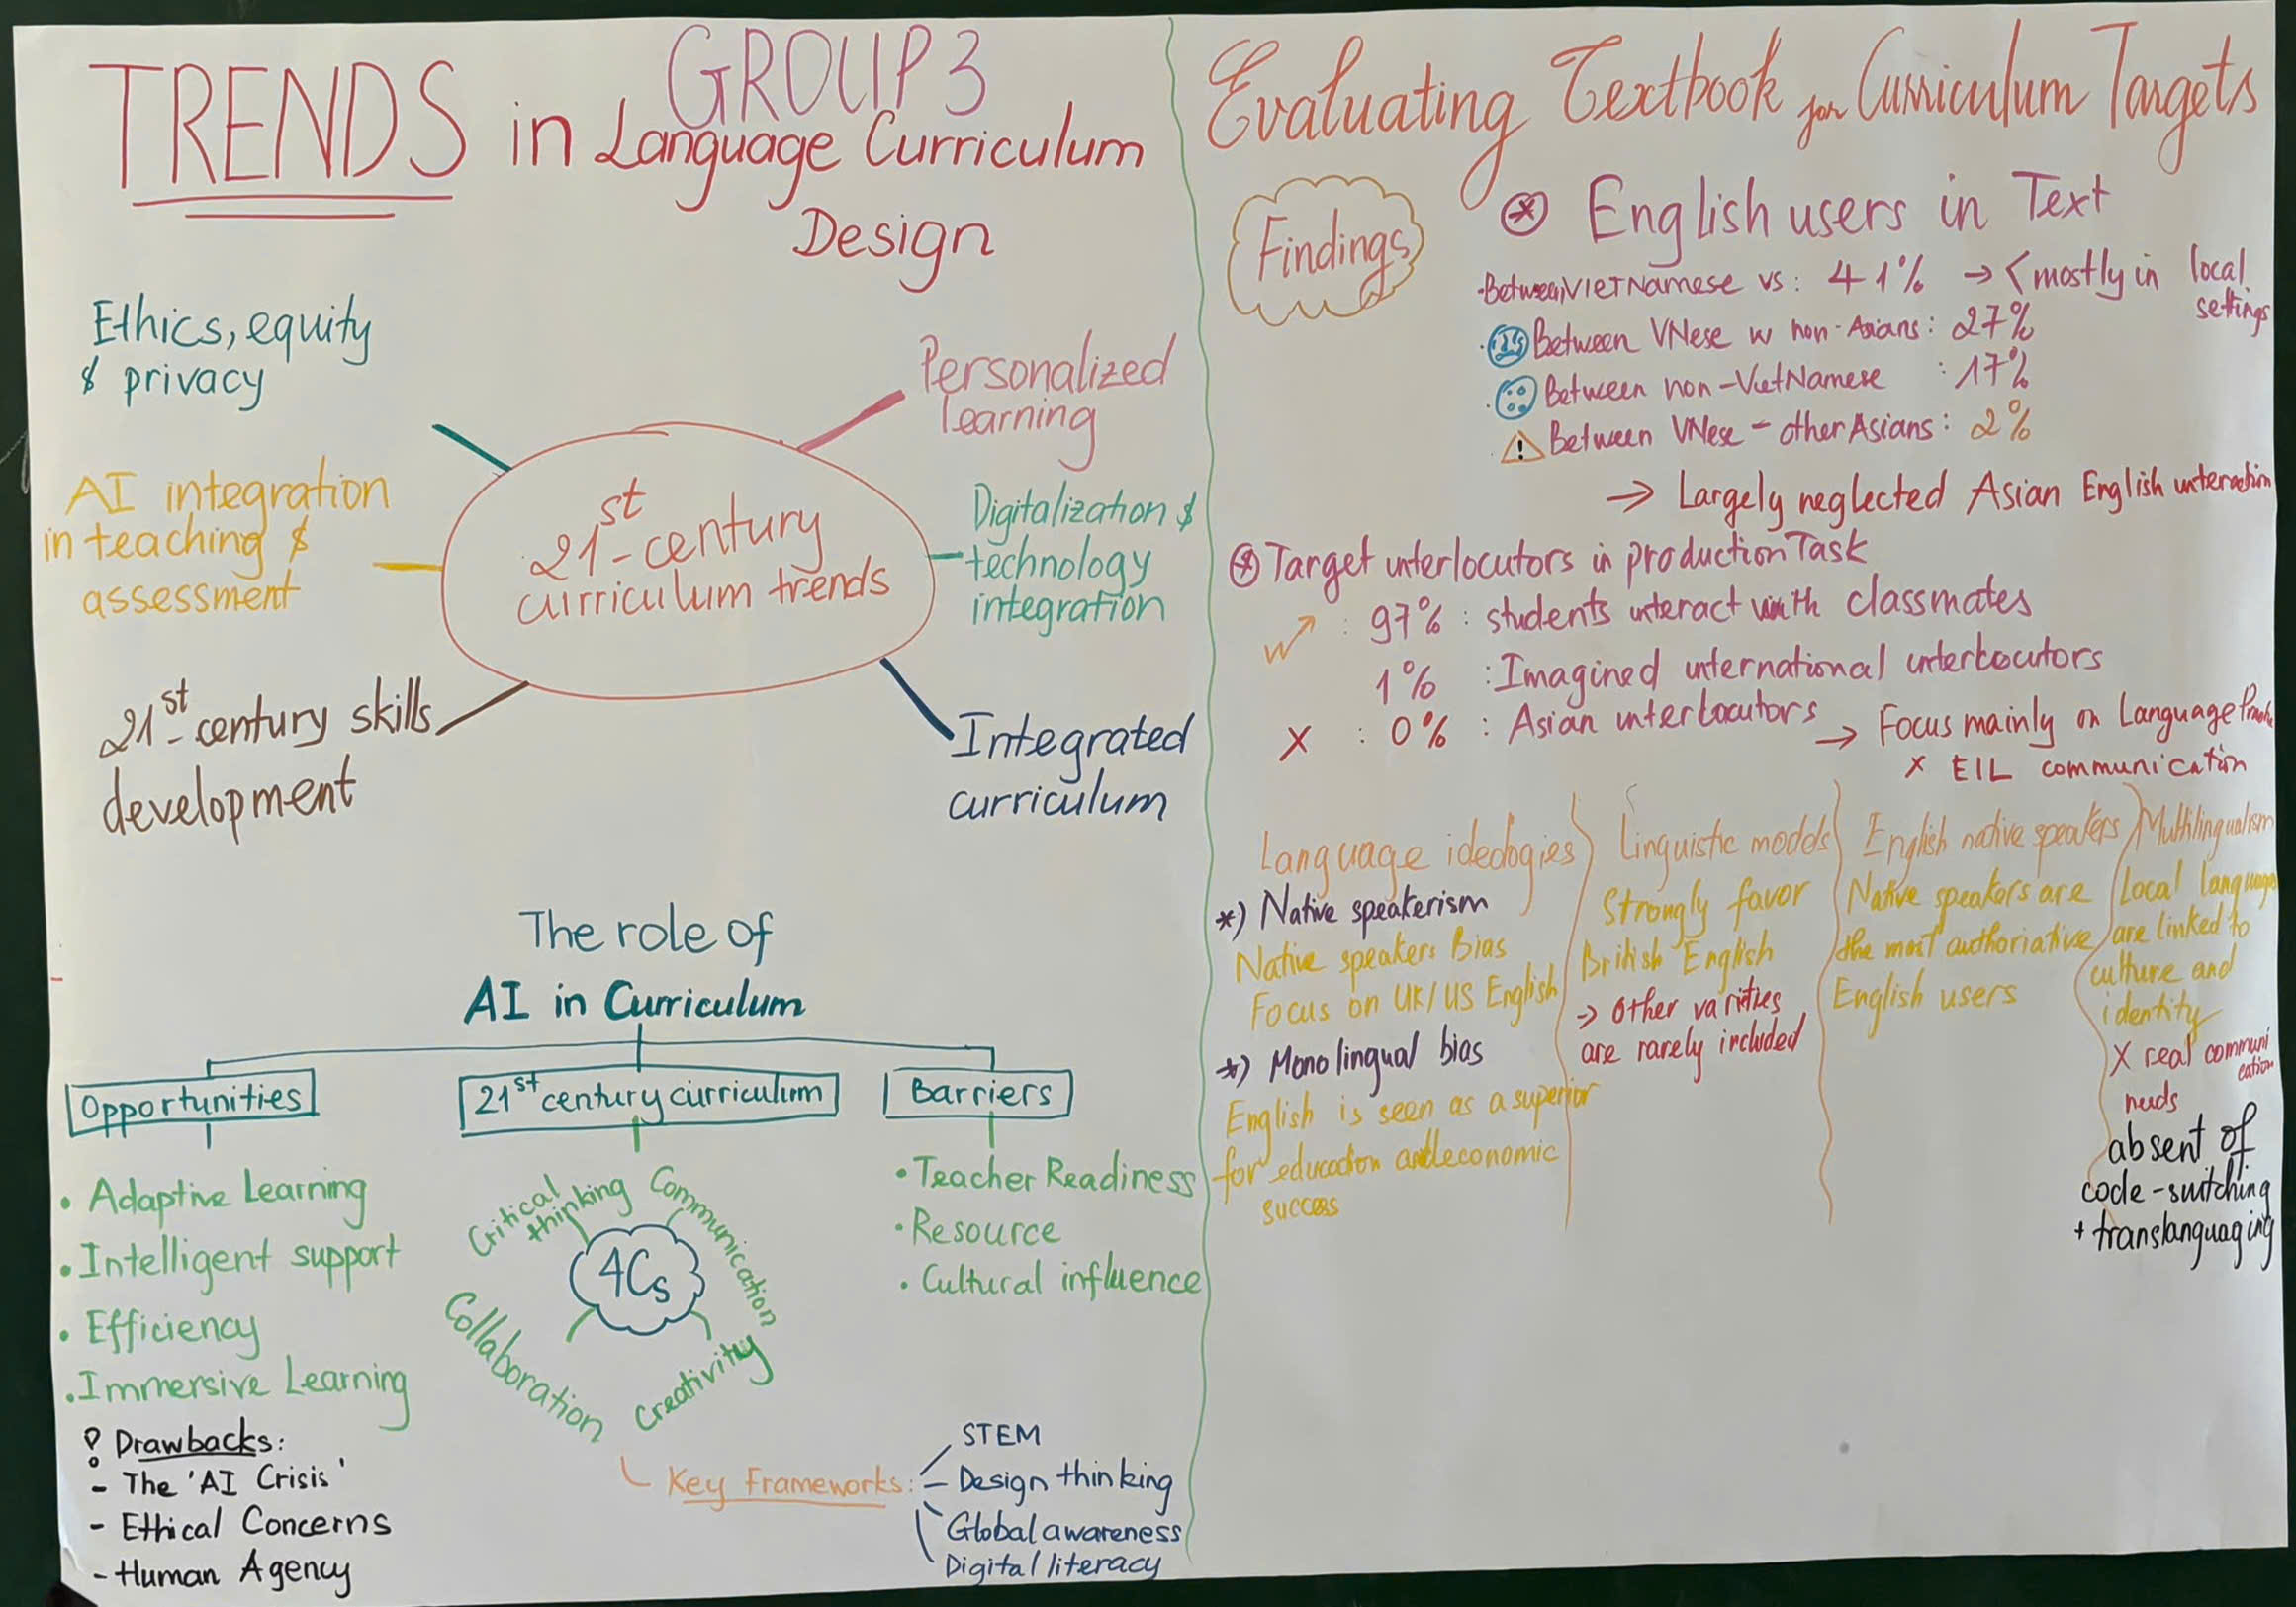 GROUP 3
TRENDS in Language Curriculum
Design
Ethics, equity
& privacy
Personalized
learning
AI integration
in teaching &
assessment
21st-century
curriculum trends
Digitalization &
technology
integration
21st-century skills
development
Integrated
curriculum
The role of
AI in Curriculum
Opportunities
• Adaptive Learning
• Intelligent support
• Efficiency
• Immersive Learning
Drawbacks:
- The 'AI Crisis'
- Ethical Concerns
- Human Agency
21st century curriculum
4Cs
Critical
thinking
Communication
Collaboration
Creativity
Key Frameworks:
STEM
Design thinking
Global awareness
Digital literacy
Barriers
• Teacher Readiness
• Resource
• Cultural influence
Evaluating Textbook for Curriculum Targets
Findings
English users in Text
- Between VIETNamese vs: 41% → < mostly in local
settings
Between VNese w non-Asians: 27%
Between non-VietNamese : 17%
Between VNese - other Asians: 2%
→ Largely neglected Asian English interaction
Target interlocutors in production Task
: 97% : students interact with classmates
1% : Imagined international interlocutors
X : 0% : Asian interlocutors
→ Focus mainly on Language
X EIL communication
Language ideologies
*) Native speakerism
Native speakers Bias
Focus on UK/US English
*) Monolingual bias
English is seen as a superior
for education and economic
success
Linguistic models
Strongly favor
British English
→ Other varities
are rarely included
English native speakers
Native speakers are
the most authoriative
English users
Multilingualism
Local language
are linked to
culture and
identity
X real communi
cation
needs
absent of
code-switching
+ translanguaging